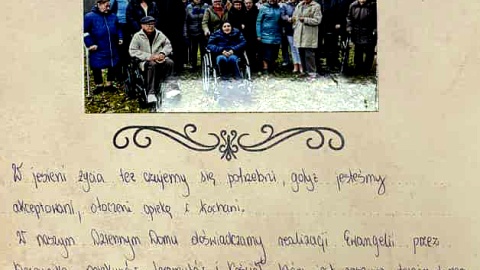 W jesieni życia też czujemy się potrzebni, gdyż jesteśmy
akceptowani, otoczeni opieką i kochani.
W naszym Dziennym Domu doświadczamy realizacji Ewangelii przez